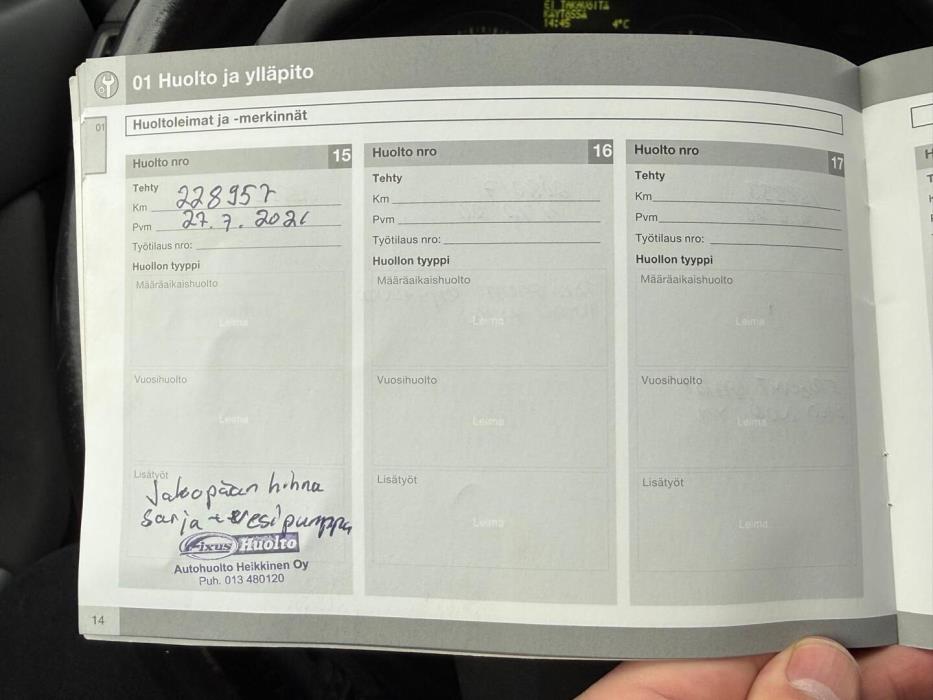 EI TAKAUSTA
KÄYTÖSSÄ
14:45 4°C
01 Huolto ja ylläpito
01
Huoltoleimat ja -merkinnät
Huolto nro 15
Tehty
Km 228957
Pvm 27.7.2021
Työtilaus nro:
Huollon tyyppi
Määräaikaishuolto
Leima
Vuosihuolto
Leima
Lisätyöt
Jakopään hihna
sarja + vesipumppu
Fixus Huolto
Autohuolto Heikkinen Oy
Puh. 013 480120
Huolto nro 16
Tehty
Km
Pvm
Työtilaus nro:
Huollon tyyppi
Määräaikaishuolto
Leima
Vuosihuolto
Leima
Lisätyöt
Leima
Huolto nro 17
Tehty
Km
Pvm
Työtilaus nro:
Huollon tyyppi
Määräaikaishuolto
Leima
Vuosihuolto
Leima
Lisätyöt
Leima
14